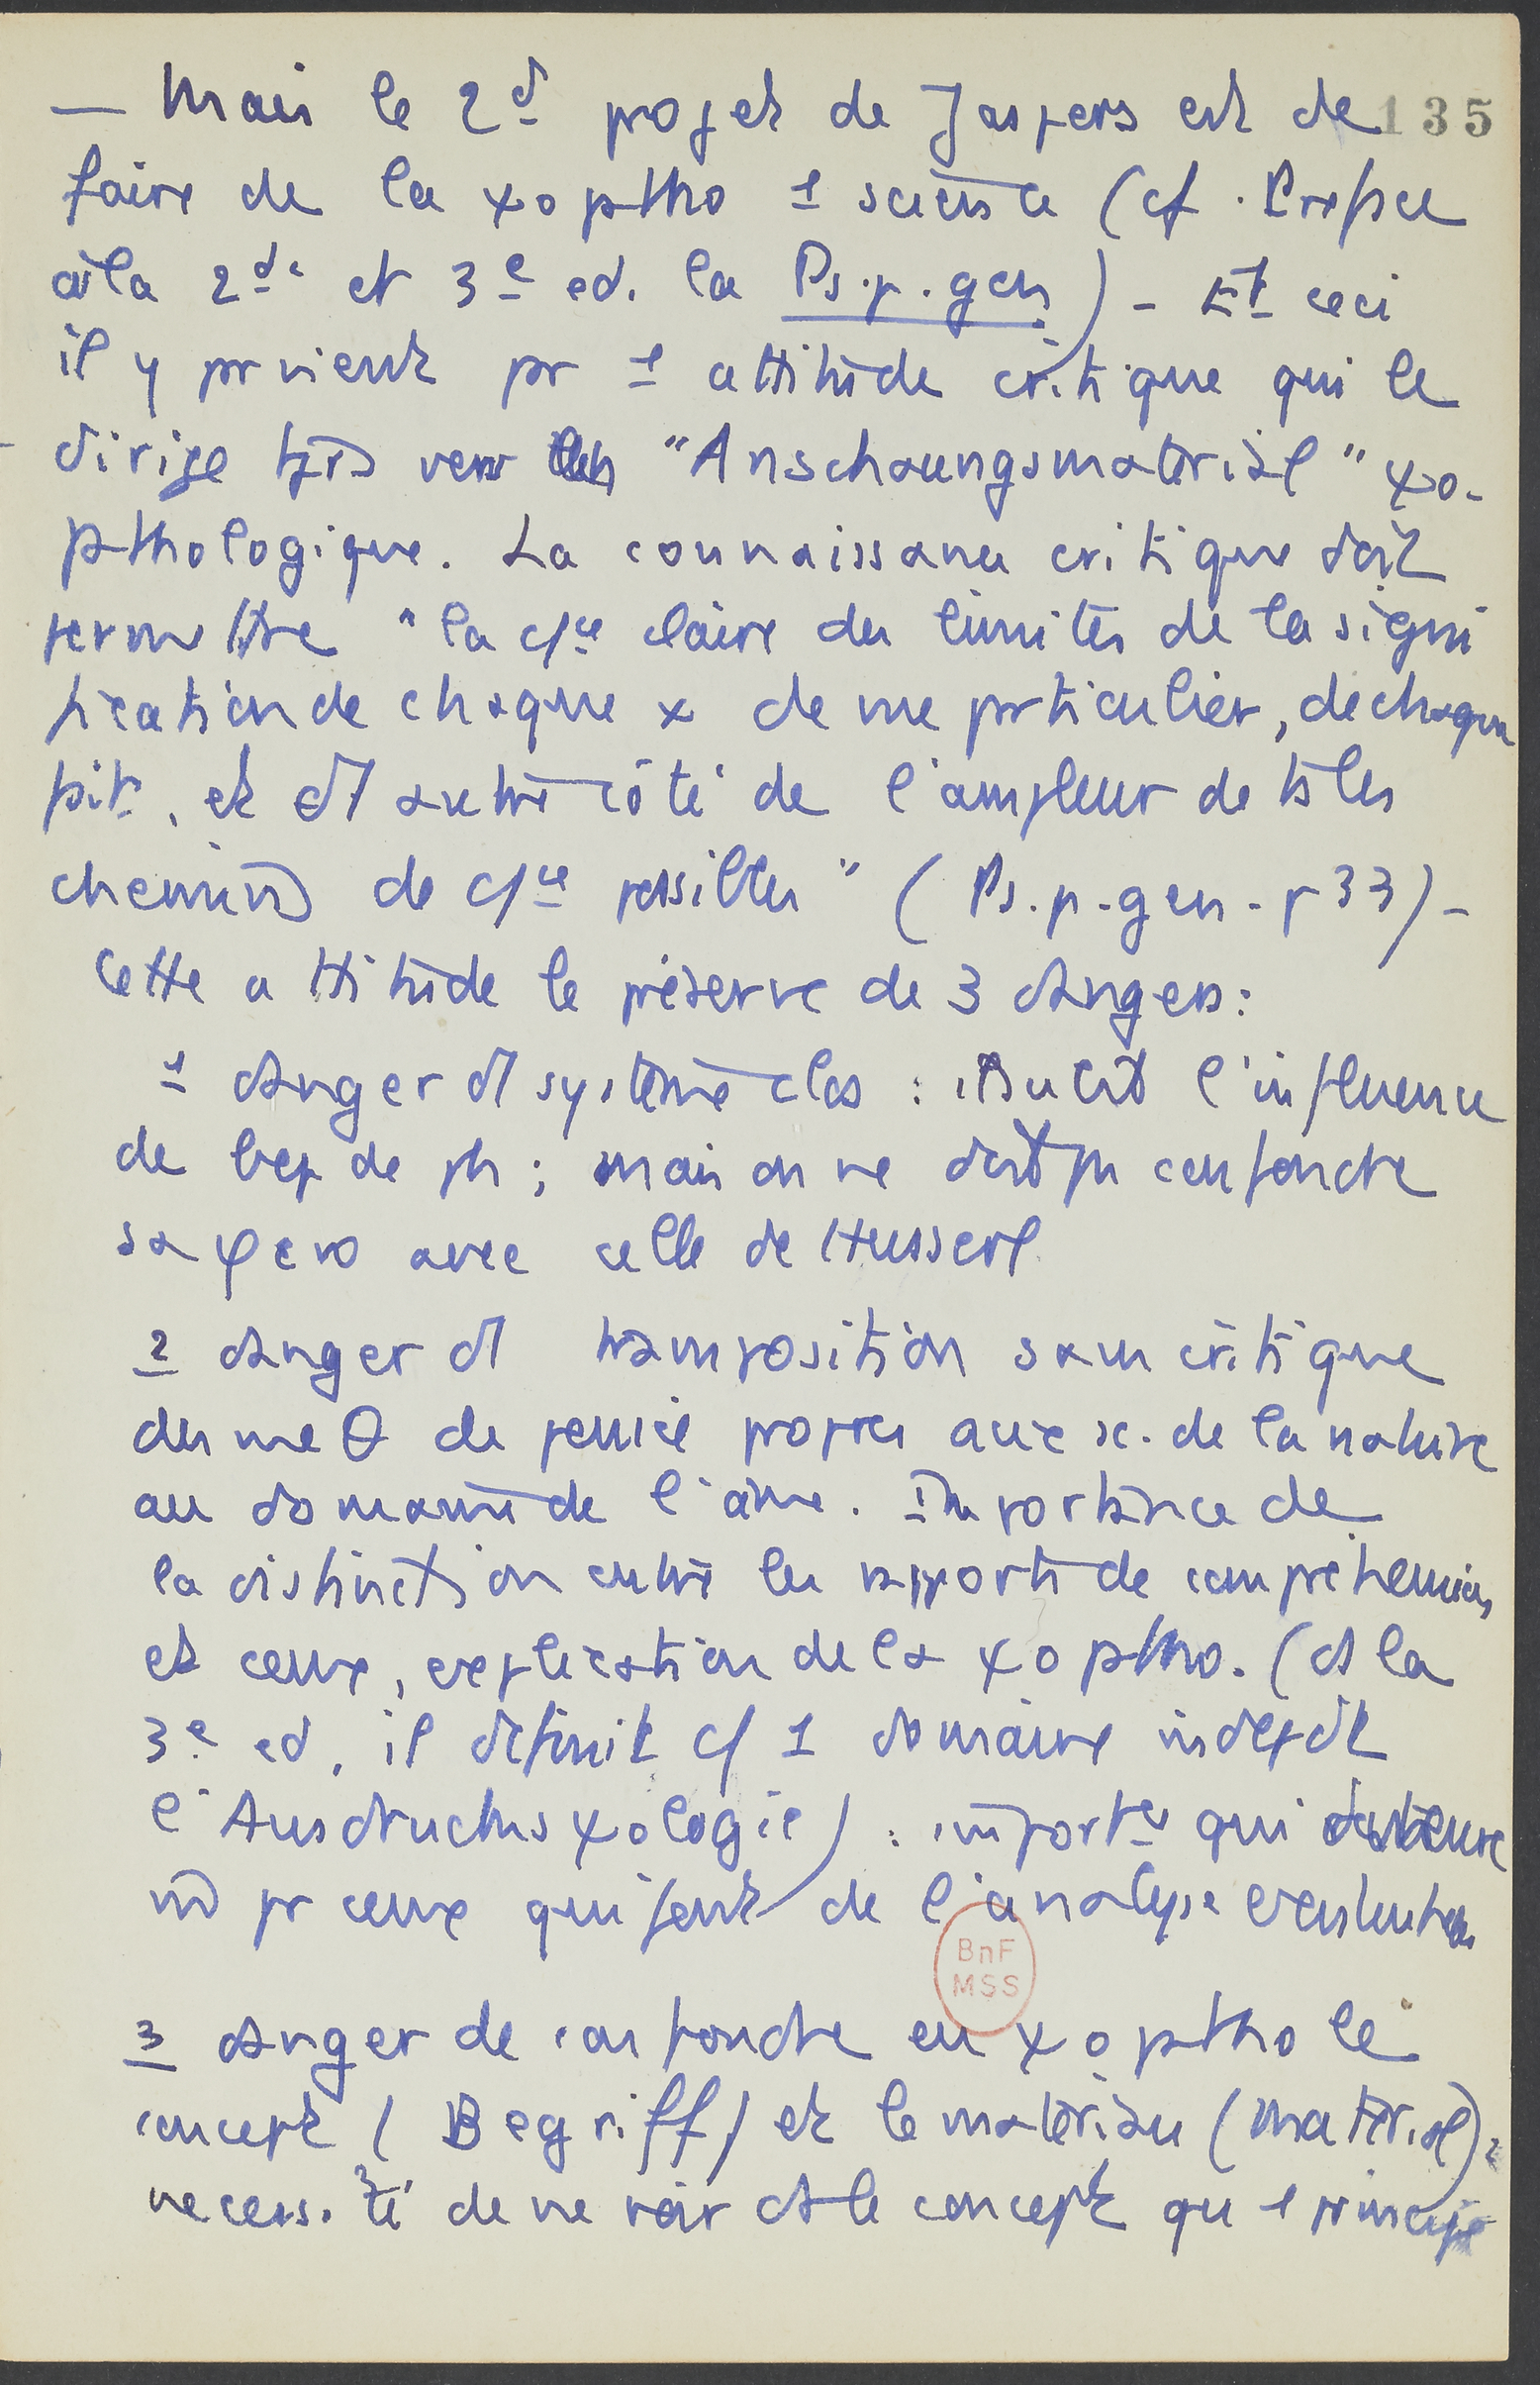 — Mais le 2d projet de Jaspers est de 135
faire de la ψo ptho 1 science (cf. Preface
à la 2de et 3e ed. la Ps.p.gen) - Et ceci
il y prvient pr 1 attitude critique qui le
dirige tjrs vers "Anschauungsmaterial" ψo-
pthologique. La connaissance critique doit
permettre "la c/ce claire des limites de la signi
fication de chaque x de vue prticulier, de chaque
fait, et d1 autre côté de l'ampleur de ts les
chemins de c/ce possibles" (Ps.p.gen. p 33) -
Cette attitude le préserve de 3 dangers :
1 danger d1 système clos : l'influence
de bcp de ph ; mais on ne doit pas confondre
sa φeno avec celle de Husserl
2 danger d1 transposition sans critique
des me θ de pensée propres aux sc. de la nature
au domaine de l'âme. Importance de
la distinction entre les rapports de compréhension
et ceux, explication de la ψo ptho. (ds la
3e ed. il définit c/ 1 domaine indepdt
l'Ausdrucksψologie) : importce qui
pr ceux qui font de l'analyse
3 danger de confondre en ψo ptho le
concept (Begriff) et le matériau (Material) :
necessité de ne voir ds le concept que 1 principe
BnF
MSS